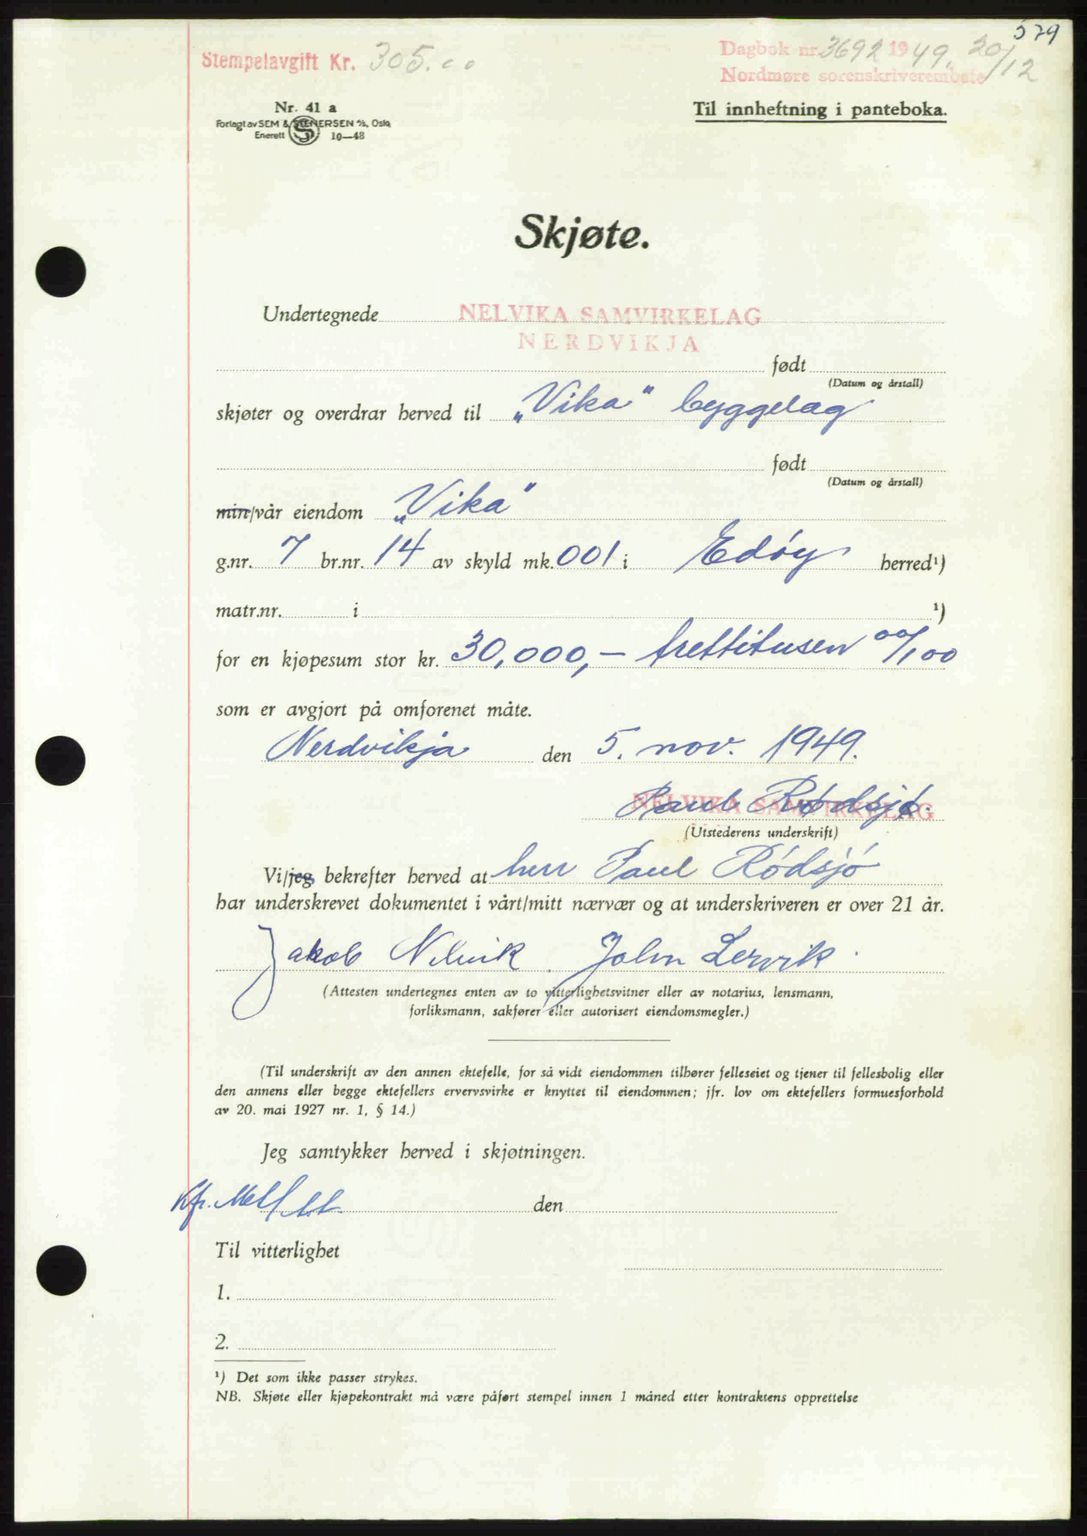 579
Stempelavgift Kr. 305.00
Dagbok nr. 3692 1949. 20/12
Nordmøre sorenskriverembete
Nr. 41 a
Forlagt av SEM & STENERSEN A/S, Oslo
Enerett S 10—48
Til innheftning i panteboka.
Skjøte.
Undertegnede NELVIKA SAMVIRKELAG
NERDVIKJA
født
(Datum og årstall)
skjøter og overdrar herved til „Vika" byggelag
født
(Datum og årstall)
min/vår eiendom „Vika"
g.nr. 7 br.nr. 14 av skyld mk. 001 i Edøy herred¹)
matr.nr. i ¹)
for en kjøpesum stor kr. 30,000,— trettitusen 00/100
som er avgjort på omforenet måte.
Nerdvikja den 5. nov. 1949.
NELVIKA SAMVIRKELAG
Paul Rødsjø.
(Utstederens underskrift)
Vi/jeg bekrefter herved at herr Paul Rødsjø
har underskrevet dokumentet i vårt/mitt nærvær og at underskriveren er over 21 år.
Jakob Nelvik. John Lervik.
(Attesten undertegnes enten av to vitterlighetsvitner eller av notarius, lensmann,
forliksmann, sakfører eller autorisert eiendomsmegler.)
(Til underskrift av den annen ektefelle, for så vidt eiendommen tilhører felleseiet og tjener til fellesbolig eller
den annens eller begge ektefellers ervervsvirke er knyttet til eiendommen; jfr. lov om ektefellers formuesforhold
av 20. mai 1927 nr. 1, § 14.)
Jeg samtykker herved i skjøtningen.
den
Til vitterlighet
1.
2.
¹) Det som ikke passer strykes.
NB. Skjøte eller kjøpekontrakt må være påført stempel innen 1 måned etter kontraktens opprettelse